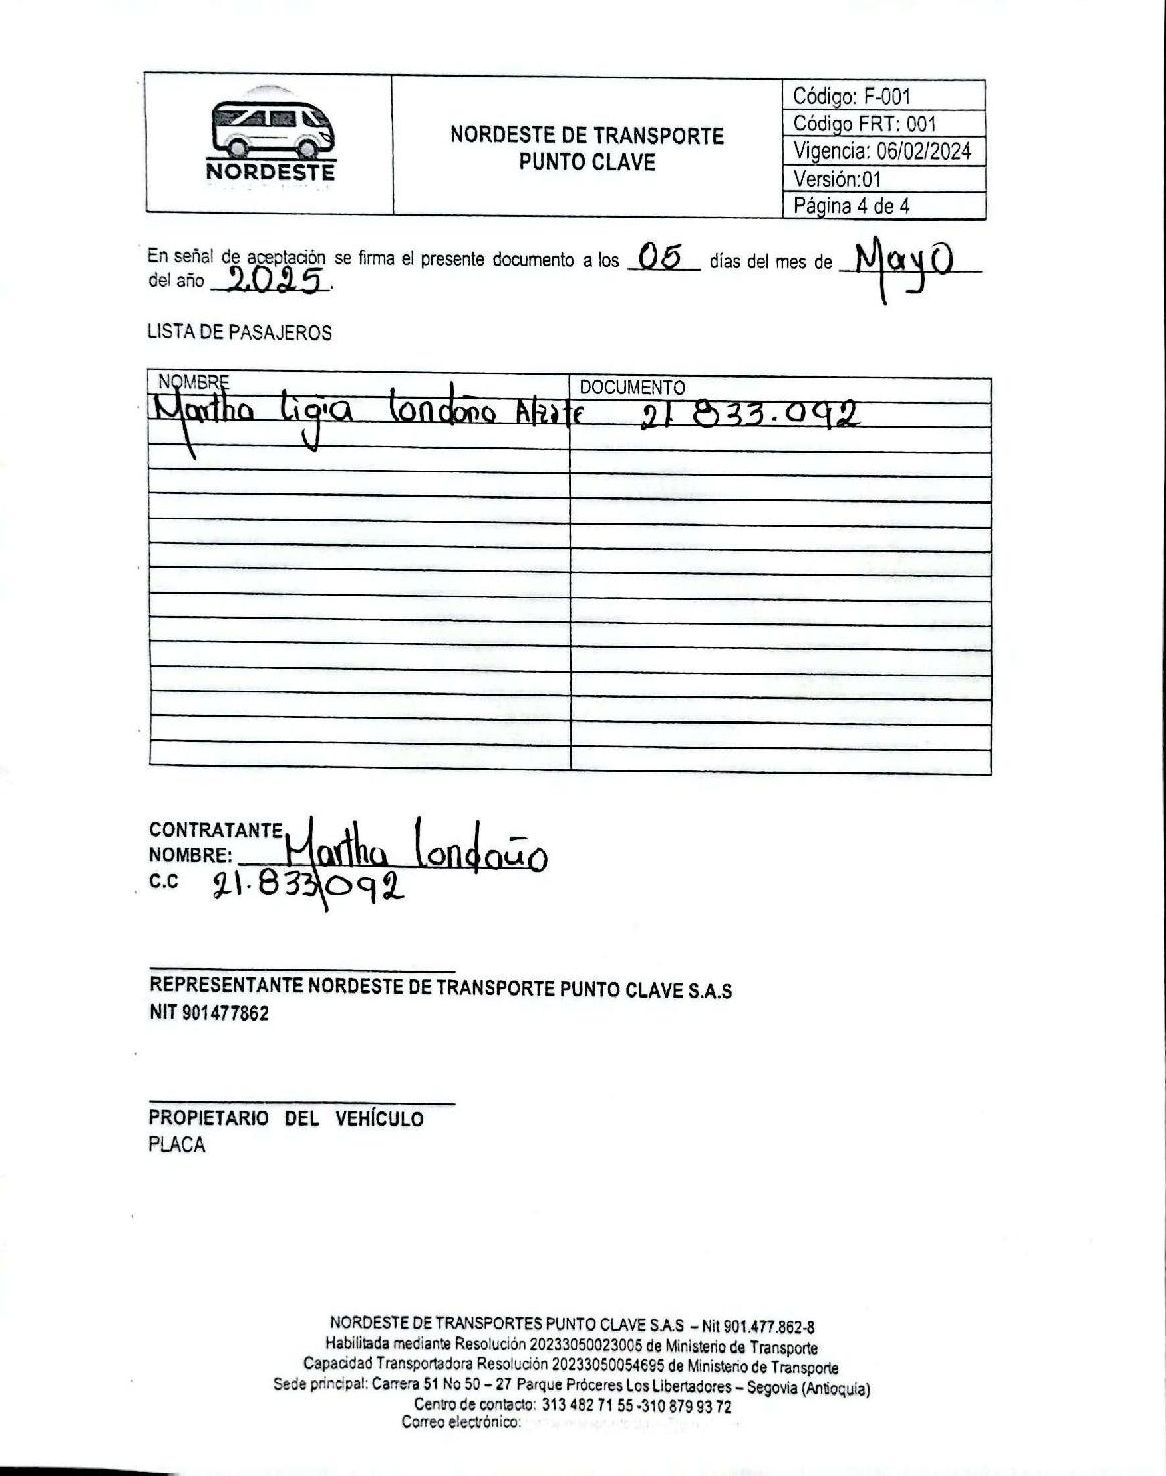 NORDESTE
NORDESTE DE TRANSPORTE
PUNTO CLAVE
Código: F-001
Código FRT: 001
Vigencia: 06/02/2024
Versión:01
Página 4 de 4
En señal de aceptación se firma el presente documento a los 05 días del mes de Mayo
del año 2025.
LISTA DE PASAJEROS
NOMBRE DOCUMENTO
Martha Ligia Londoño Alzate 21 833.092
CONTRATANTE
NOMBRE: Martha Londoño
C.C 21.833.092
REPRESENTANTE NORDESTE DE TRANSPORTE PUNTO CLAVE S.A.S
NIT 901477862
PROPIETARIO DEL VEHÍCULO
PLACA
NORDESTE DE TRANSPORTES PUNTO CLAVE S.A.S – Nit 901.477.862-8
Habilitada mediante Resolución 20233050023005 de Ministerio de Transporte
Capacidad Transportadora Resolución 20233050054695 de Ministerio de Transporte
Sede principal: Carrera 51 No 50 – 27 Parque Próceres Los Libertadores – Segovia (Antioquia)
Centro de contacto: 313 482 71 55 -310 879 93 72
Correo electrónico: